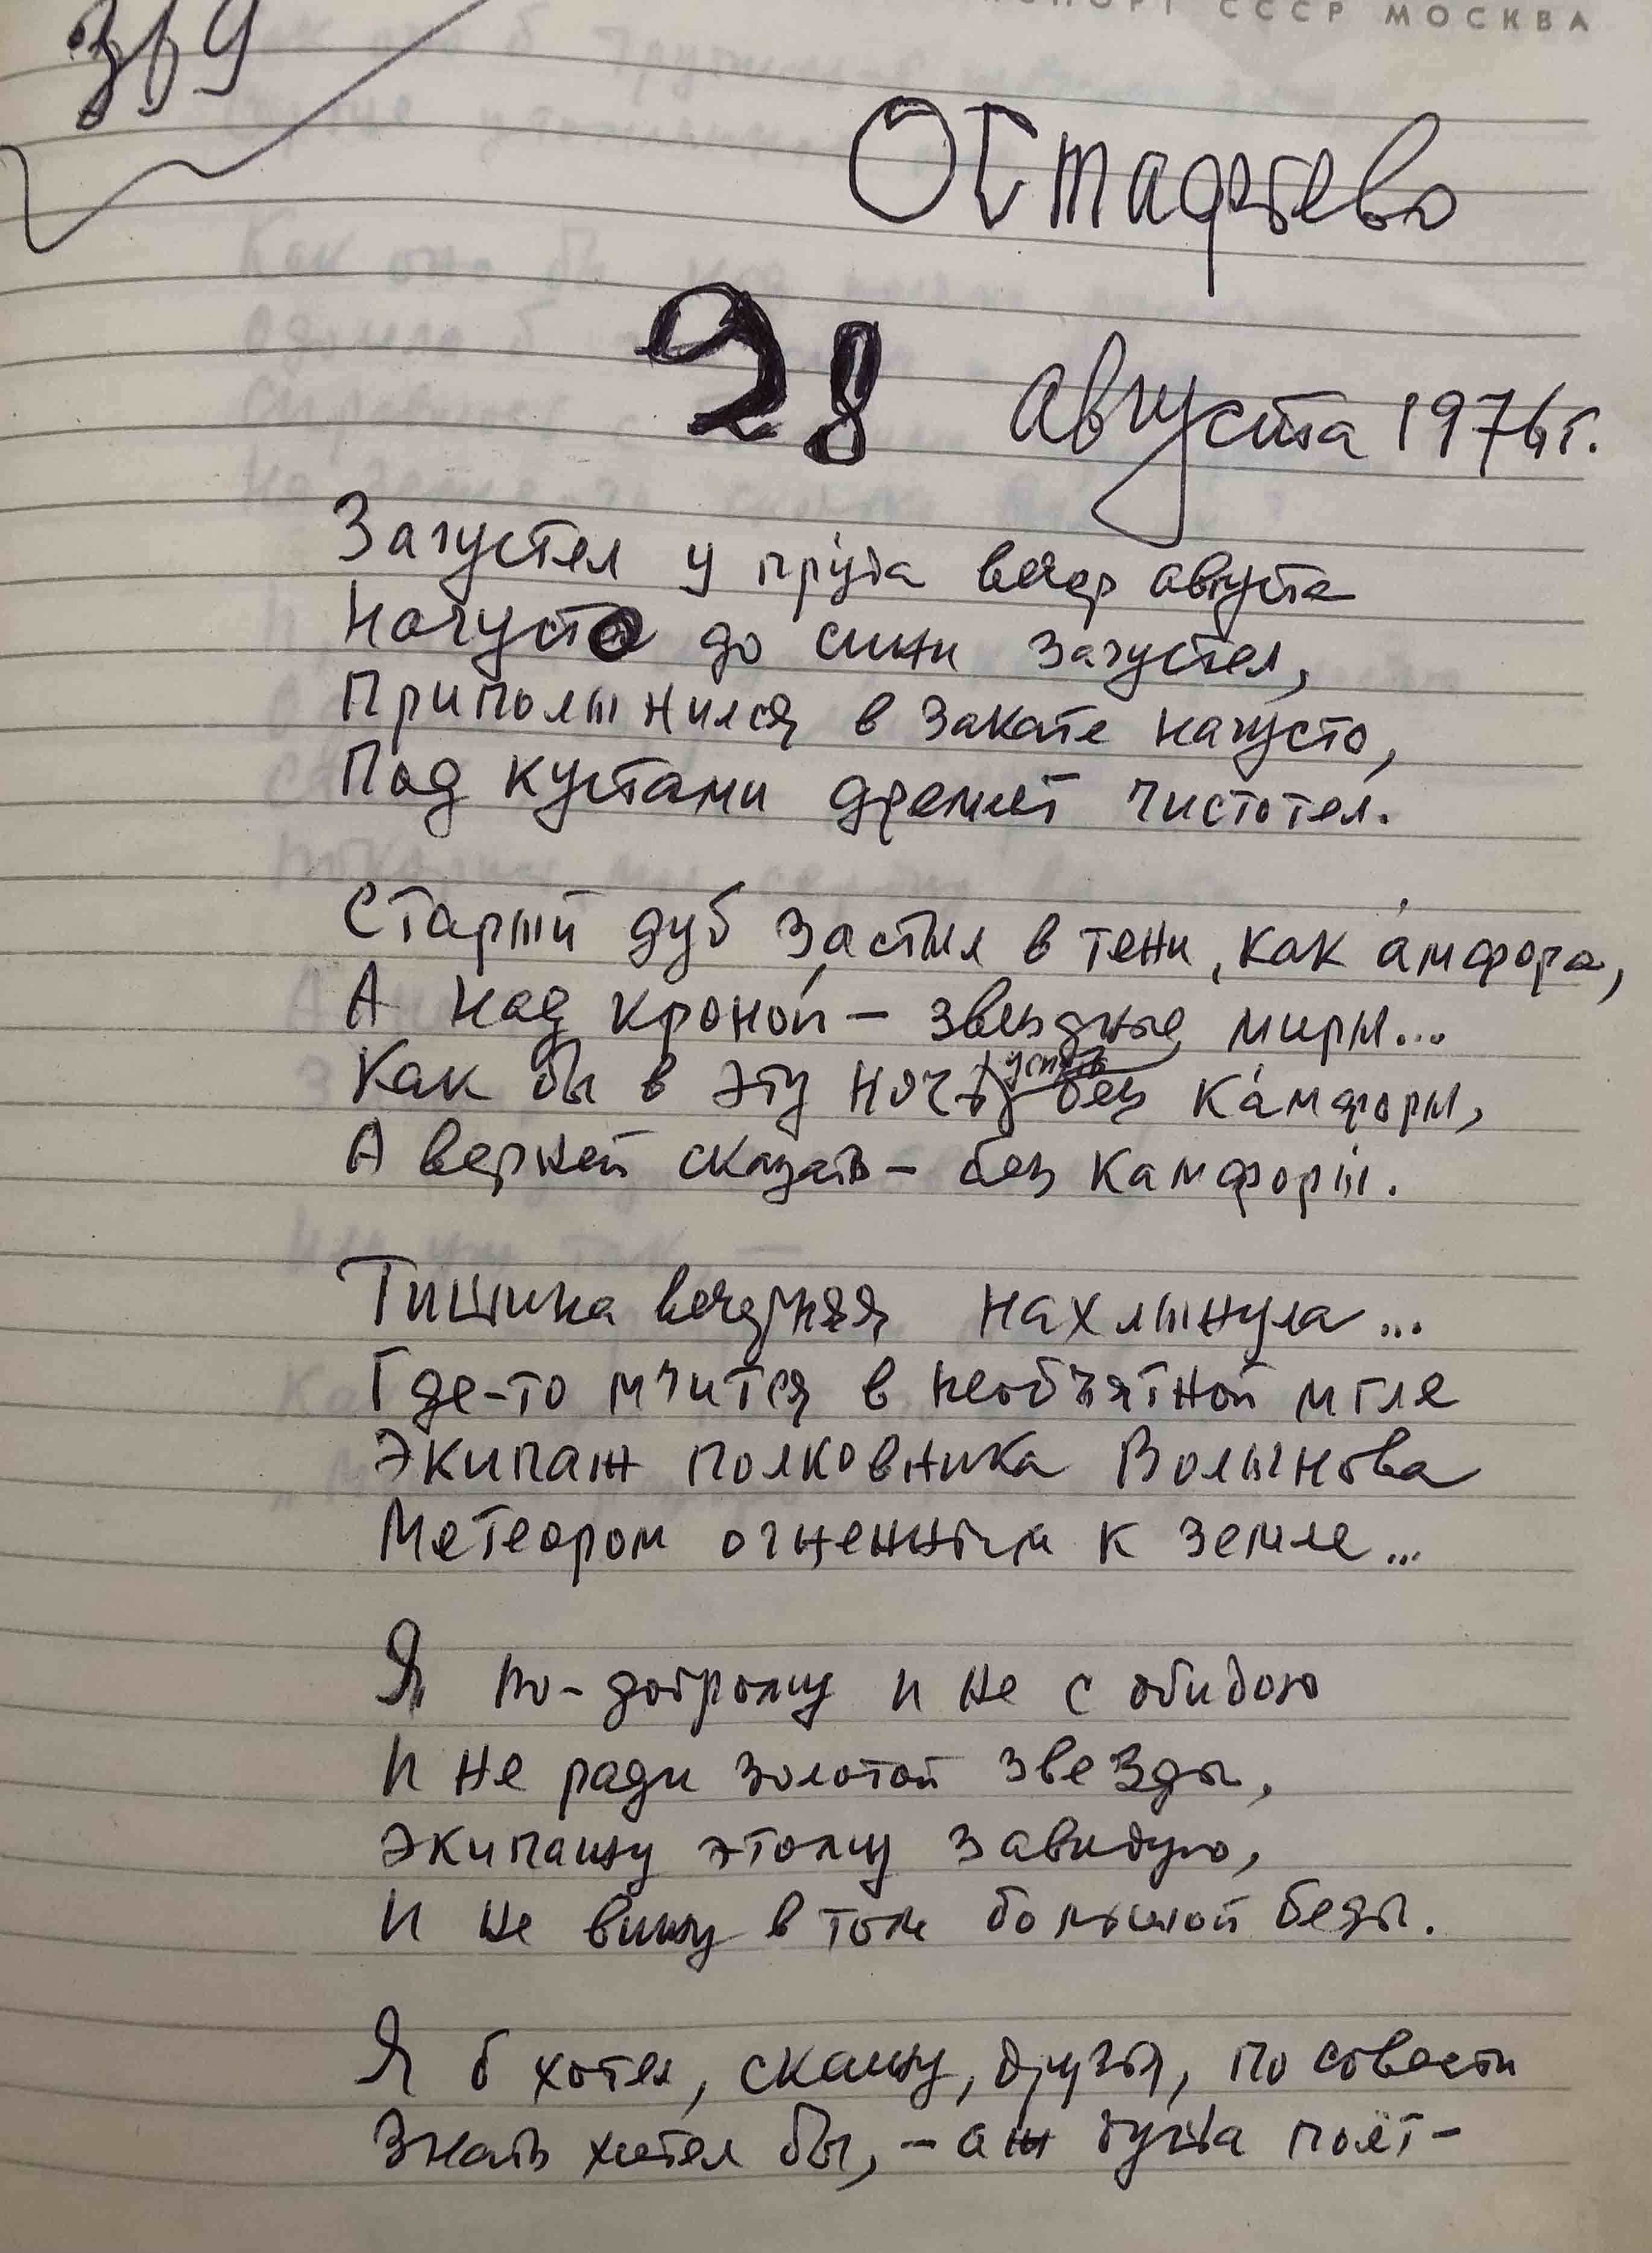 СССР МОСКВА
369
Остафьево
28 августа 1976 г.
Загустел у пруда вечер августа
Нагусто до сини загустел,
Приполынился в закате нагусто,
Под кустами дремлет чистотел.
Старый дуб застыл в тени, как а́мфора,
А над кроной – звездные миры...
Как бы в эту ночь уснуть без ка́мфоры,
А верней сказать – без камфоры́.
Тишина вечерняя нахлынула...
Где-то мчится в необъятной мгле
Экипаж полковника Волынова
Метеором огненным к земле...
Я по-доброму и не с обидою
И не ради золотой звезды,
Экипажу этому завидую,
И не вижу в том большой беды.
Я б хотел, скажу, друзья, по совести
Знать хотел бы, – аж душа поёт –